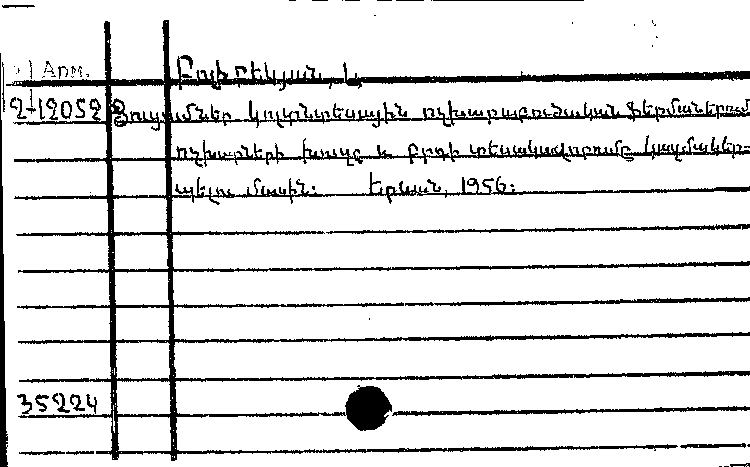 Арм.
2-12052
Ցուցումներ կոլտնտեսային ոչխարաբուծական ֆերմաներում
ոչխարների խուզը և բրդի տեսակավորումը կազմակեր-
պելու մասին։ Երևան, 1956։
35224